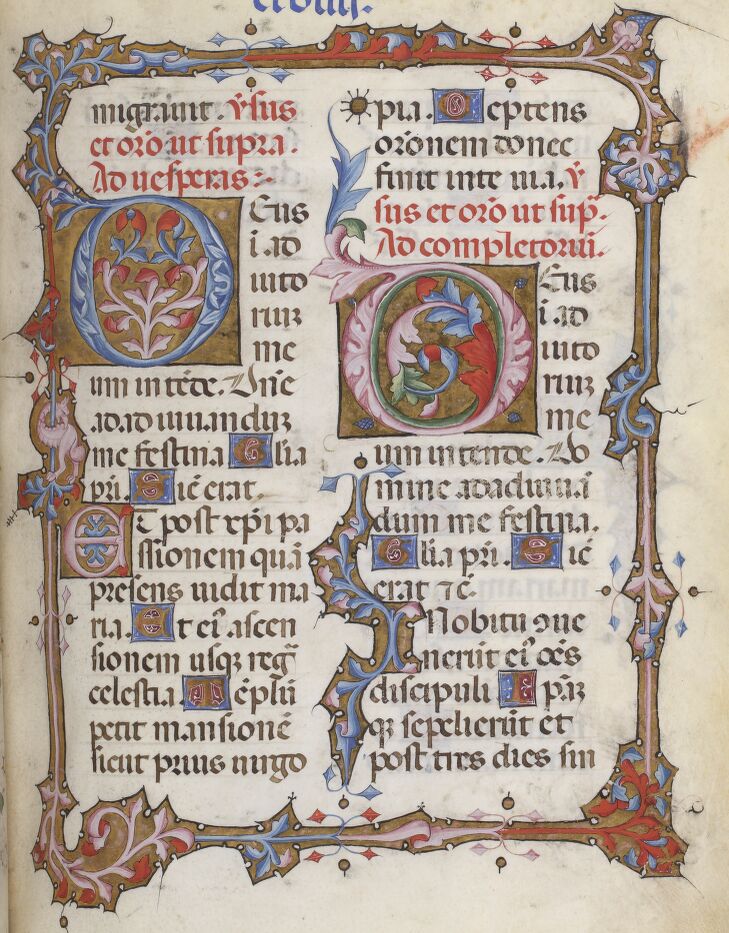 migravit. v̄sus
et orō ut supra.
Ad vesperas:
Deus
i. ad
iuto
rium
me
um intēde. Dn̄e
ad adiuuandum
me festina Glīa
pri. Sic̄ erat.
Et post xp̄i pa
ssionem quā
presens uidit ma
ria. Et eī ascen
sionem usq; reḡ
celestia. Tēplū
petit mansionē
sicut prius virgo
pia. Reptens
orōnem donec
finit inte uia. v̄
sus et orō ut sup̄.
Ad completoriū.
Deus
i. ad
iuto
rium
me
um intende. Do
mine ad adiuuā
dum me festina.
Glīa pri. Sic̄
erat ⁊c̄.
In obitu ꝯue
nerūt eī oēs
discipuli
q; sepelierūt et
post tres dies sin